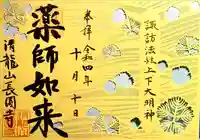 諏訪法性上下大明神
奉拝 令和四年
十月十日
薬師如来
瑠龍山長圓寺